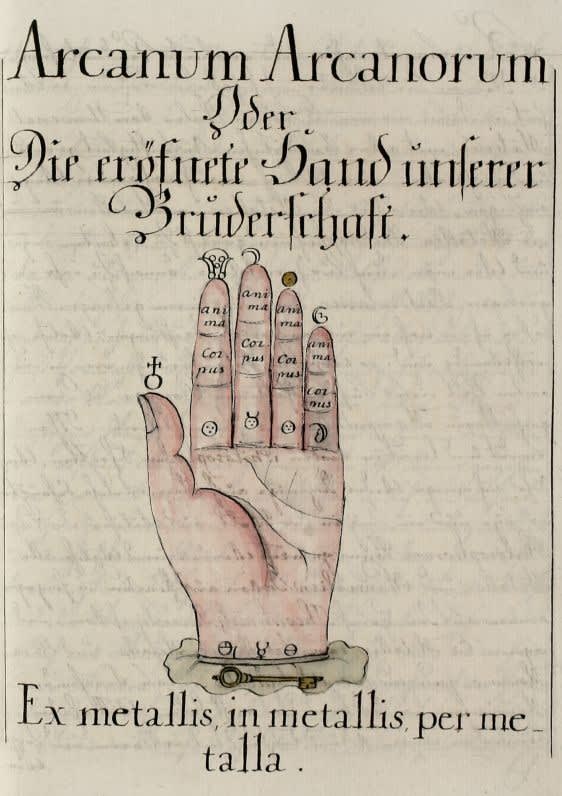 Arcanum Arcanorum
Oder
Die eröfnete Hand unserer
Bruderschaft.
ani
ma
Cor
pus
ani
ma
Cor
pus
ani
ma
Cor
pus
ani
ma
Cor
pus
Ex metallis, in metallis, per me-
talla.